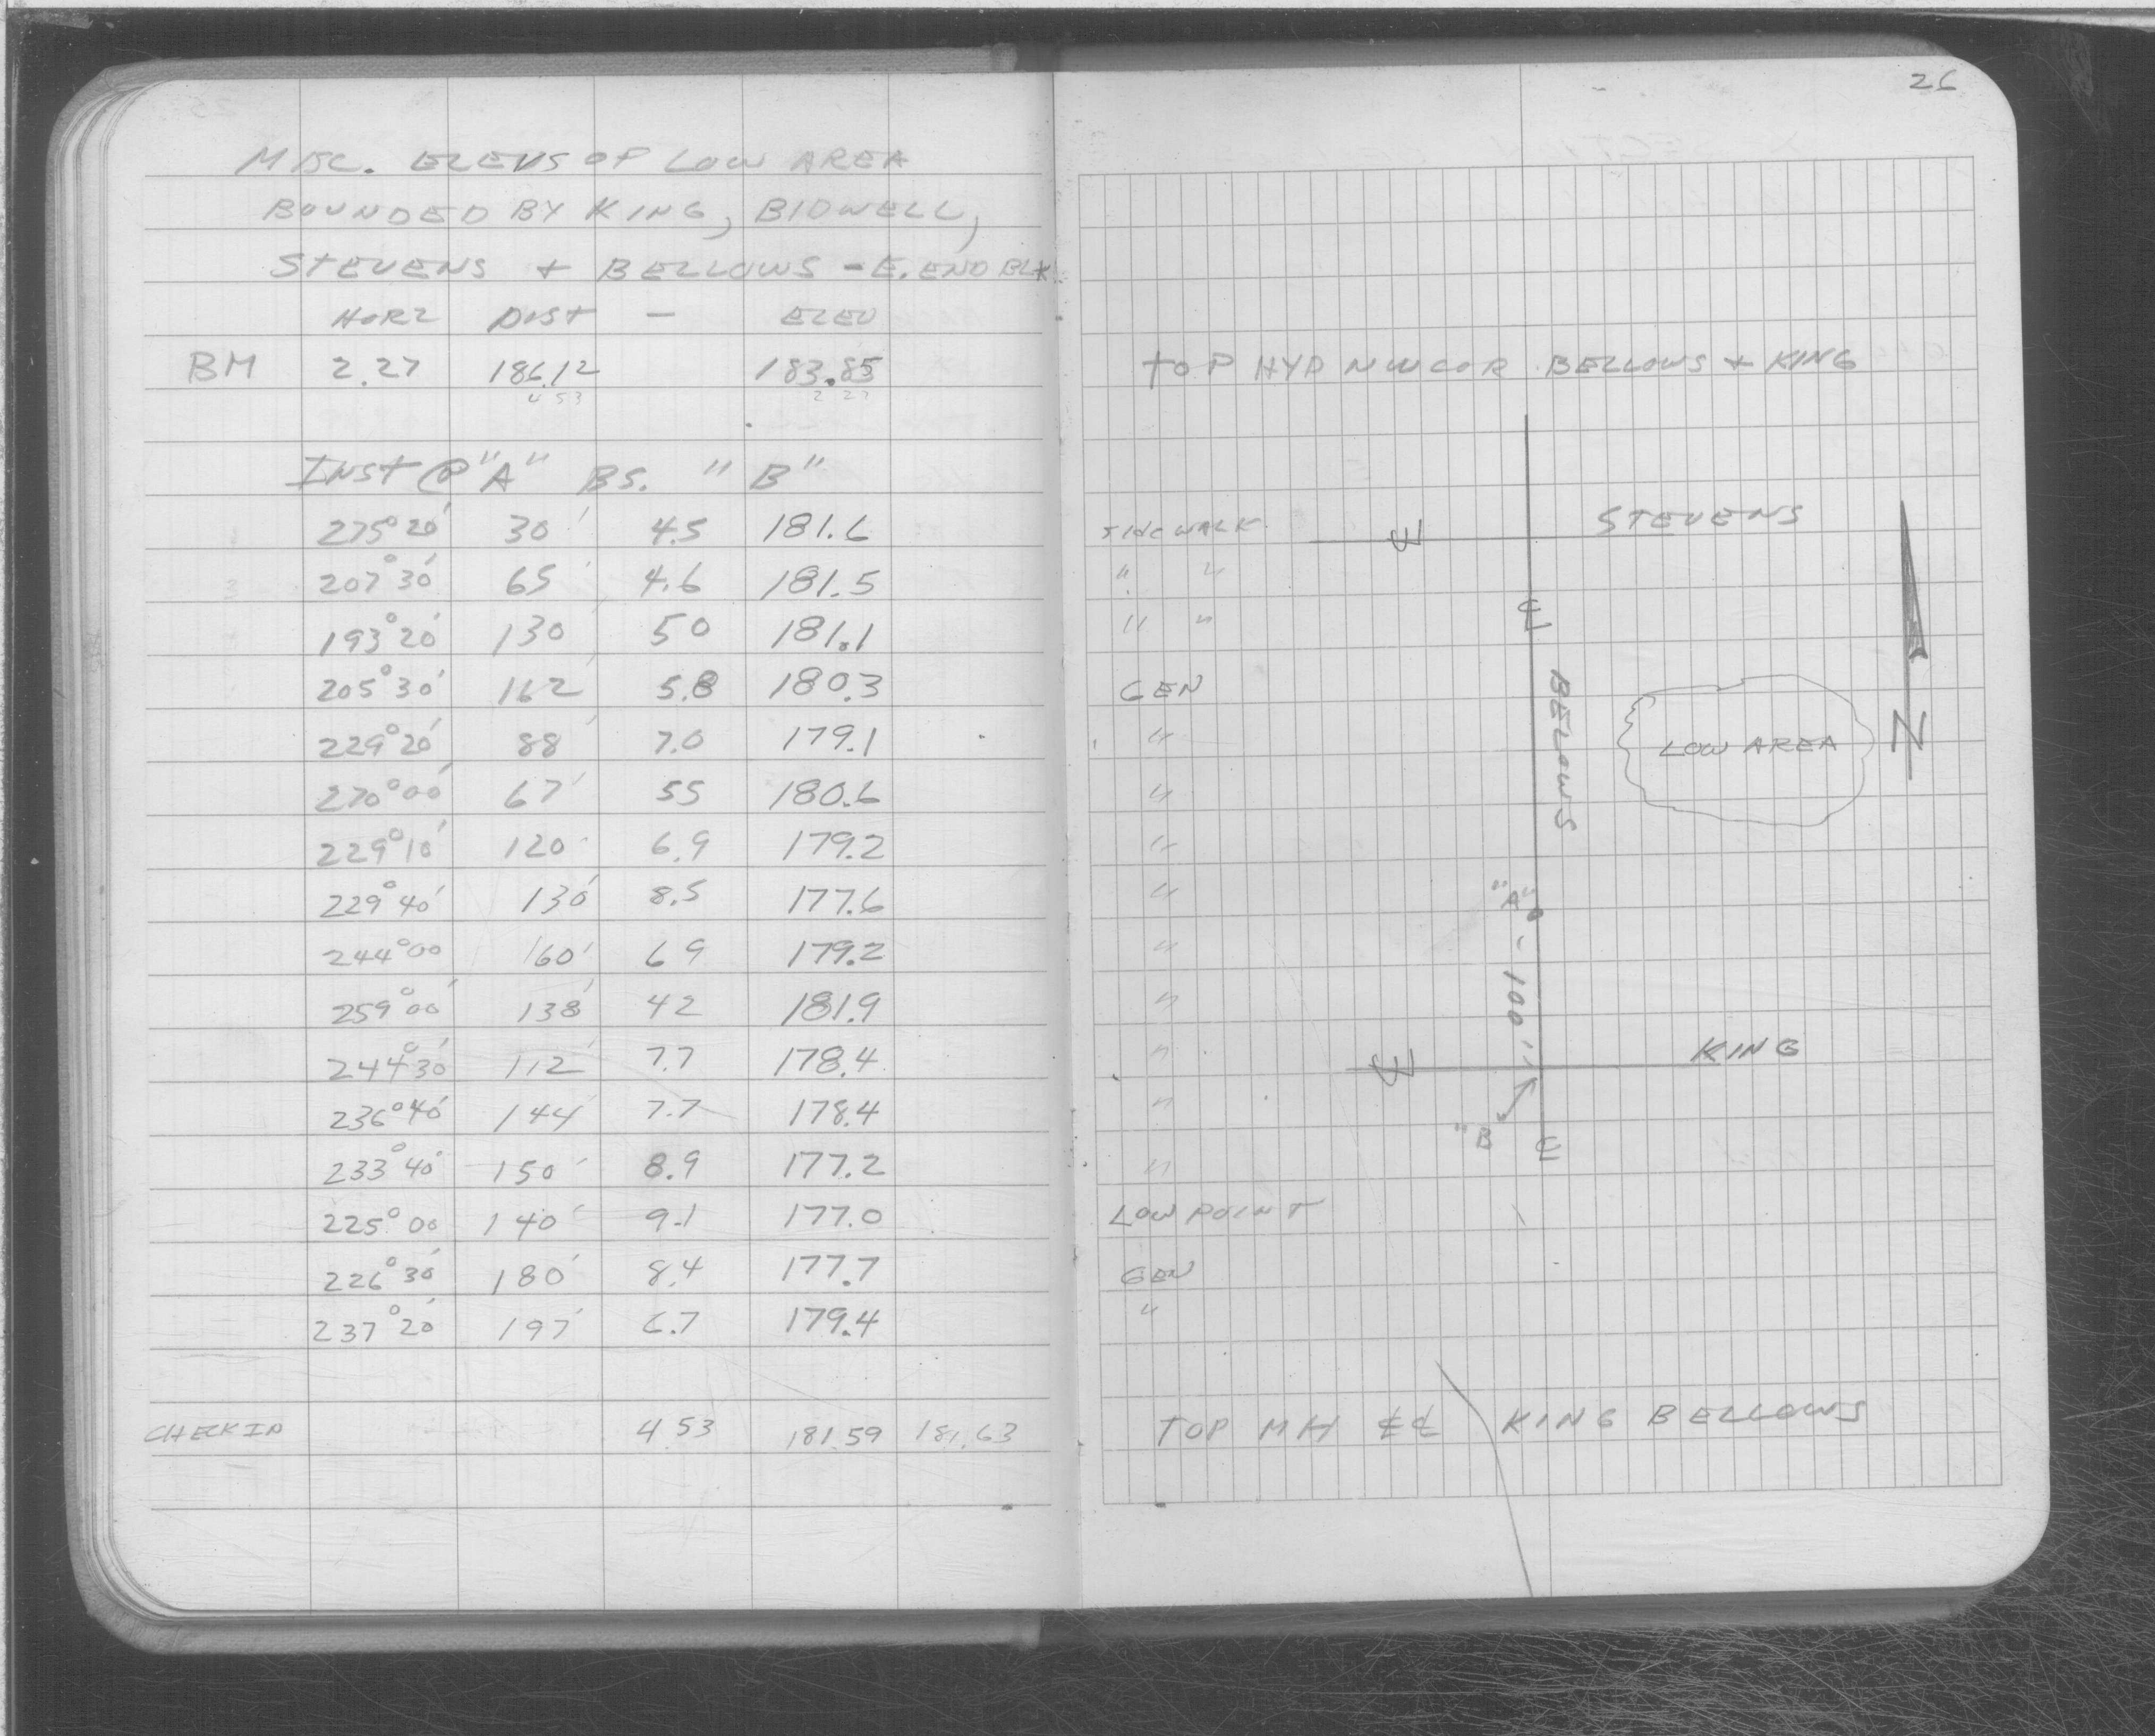 26
MISC. ELEVS OF LOW AREA
BOUNDED BY KING, BIDWELL,
STEVENS + BELLOWS - E. END BLK
HORZ DIST - ELEV
BM 2.27 186.12 183.85 TOP HYD NW COR. BELLOWS + KING
4 53 2 27
INST @ "A" BS. "B"
275°20' 30' 4.5 181.6 SIDEWALK
207°30' 65' 4.6 181.5 " "
193°20' 130 50 181.1 " "
205°30' 162' 5.8 180.3 GEN
229°20' 88' 7.0 179.1 "
270°00' 67' 55 180.6 "
229°10' 120 6.9 179.2 "
229°40' 130' 8.5 177.6 "
244°00 160' 69 179.2 "
259°00' 138' 42 181.9 "
244°30' 112' 7.7 178.4 "
236°40' 144' 7.7 178.4 "
233°40' 150' 8.9 177.2 "
225°00 140' 9.1 177.0 LOW POINT
226°30' 180' 8.4 177.7 GEN
237°20' 197' 6.7 179.4 "
CHECK IN 4 53 181.59 181.63 TOP MH ℄℄ KING BELLOWS
℄ STEVENS
℄
BELLOWS
LOW AREA
N
"A"
100'
℄ KING
"B" ℄